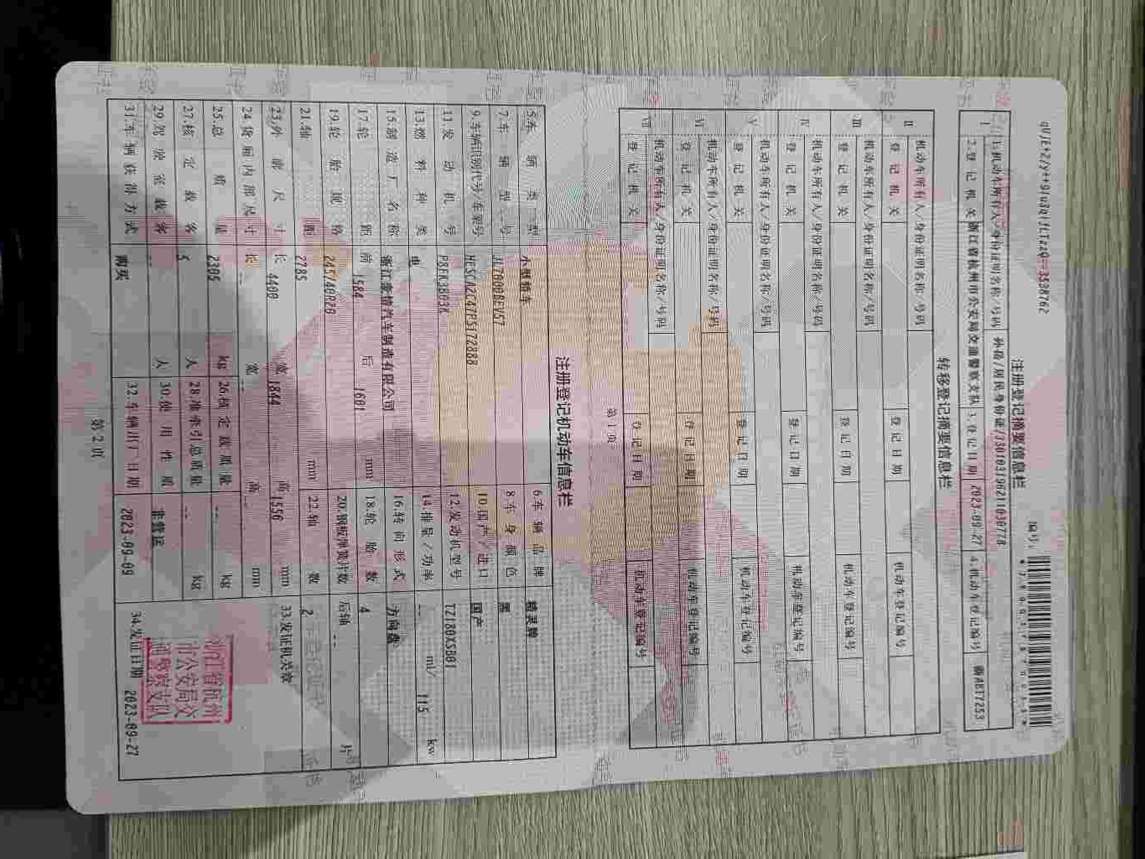 qU/E+2/y++9lu3qlfLTzzQ==3598762
编号:
注册登记摘要信息栏
I 1.机动车所有人/身份证明名称/号码 孙磊/居民身份证/330103196211030778
2.登记机关 浙江省杭州市公安局交通警察支队 3.登记日期 2023-09-27 4.机动车登记编号 浙AB77253
转移登记摘要信息栏
II 机动车所有人/身份证明名称/号码
登记机关 登记日期 机动车登记编号
III 机动车所有人/身份证明名称/号码
登记机关 登记日期 机动车登记编号
IV 机动车所有人/身份证明名称/号码
登记机关 登记日期 机动车登记编号
V 机动车所有人/身份证明名称/号码
登记机关 登记日期 机动车登记编号
VI 机动车所有人/身份证明名称/号码
登记机关 登记日期 机动车登记编号
VII 机动车所有人/身份证明名称/号码
登记机关 登记日期 机动车登记编号
第1页
注册登记机动车信息栏
5.车辆类型 小型轿车 6.车辆品牌
7.车辆型号 JL7000BEV57 8.车身颜色 黑
9.车辆识别代号/车架号 HESCA2C47PS172888 10.国产/进口 国产
11.发动机号 P8FK3803K 12.发动机型号 TZ180XSB01
13.燃料种类 电 14.排量/功率 -- ml/ 115 kw
15.制造厂名称 浙江豪情汽车制造有限公司 16.转向形式 方向盘
17.轮距 前 1584 后 1601 mm 18.轮胎数 4
19.轮胎规格 245/40R20 20.钢板弹簧片数 后轴 -- 片
21.轴距 2785 mm 22.轴数 2
23.外廓尺寸 长 4400 宽 1844 高 1556 mm 33.发证机关章
24.货厢内部尺寸 长 -- 宽 -- 高 -- mm
25.总质量 2305 kg 26.核定载质量 -- kg
27.核定载客 5 人 28.准牵引总质量 -- kg
29.驾驶室载客 -- 人 30.使用性质 非营运
31.车辆获得方式 购买 32.车辆出厂日期 2023-09-09 34.发证日期 2023-09-27
浙江省杭州
市公安局交
通警察支队
第2页